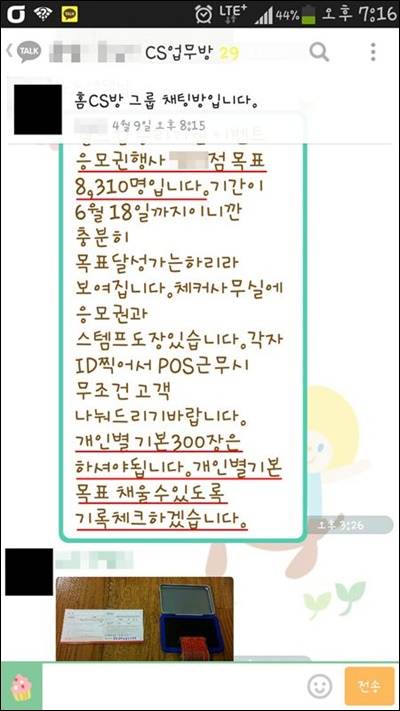 LTE+ 44% 오후 7:16
TALK CS업무방 29
홈CS방 그룹 채팅방입니다.
4월 9일 오후 8:15
응모권행사 점 목표
8,310명입니다.기간이
6월 18일까지이니깐
충분히
목표달성가는하리라
보여집니다.체커사무실에
응모권과
스템프도장있습니다.각자
ID찍어서 POS근무시
무조건 고객
나눠드리기바랍니다.
개인별 기본300장은
하셔야됩니다.개인별기본
목표 채울수있도록
기록체크하겠습니다.
오후 3:26
전송